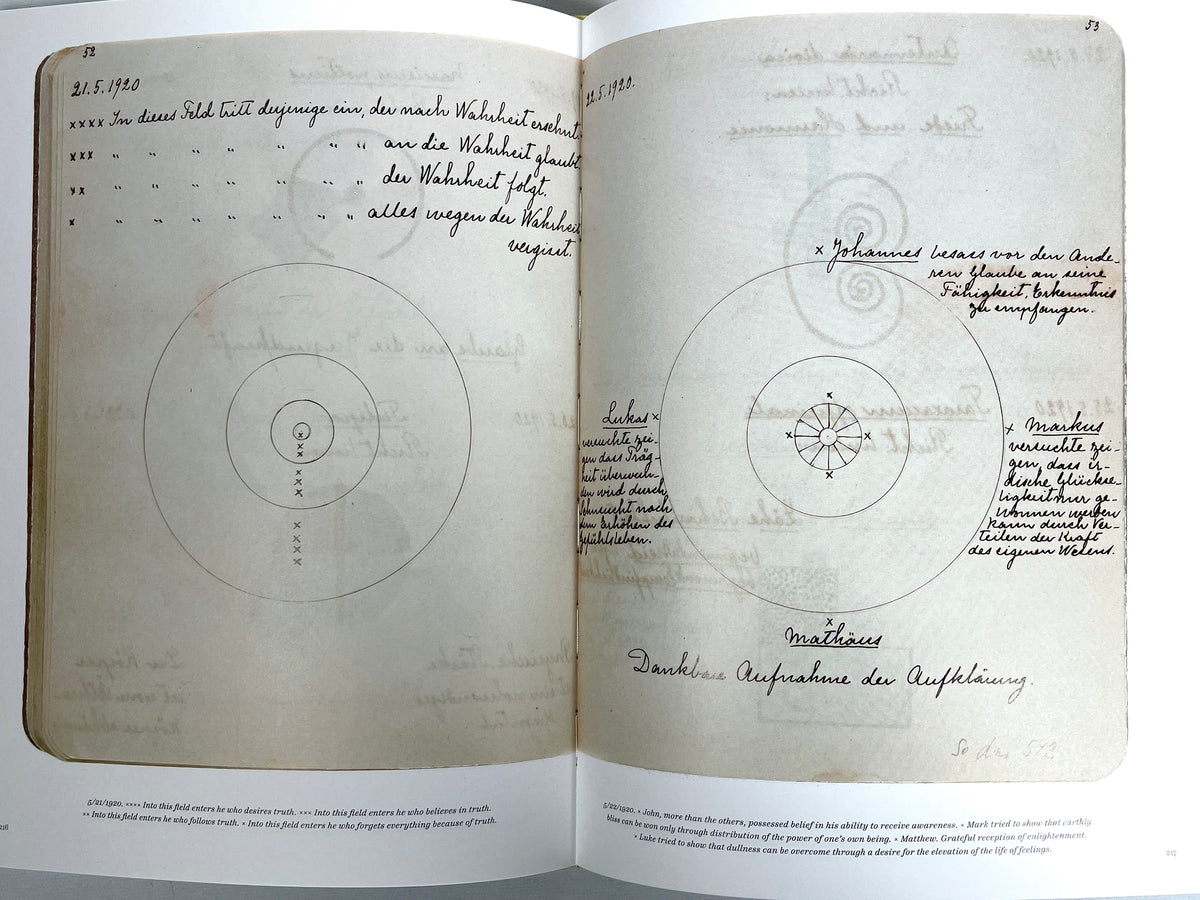 52
21.5.1920
xxxx In dieses Feld tritt derjenige ein, der nach Wahrheit ersehnt.
xxx " " " " " " " an die Wahrheit glaubt.
xx " " " " " " " der Wahrheit folgt.
x " " " " " " " alles wegen der Wahrheit
vergisst.
x
x
x
x
x
x
x
x
x
x
5/21/1920. xxxx Into this field enters he who desires truth. xxx Into this field enters he who believes in truth.
xx Into this field enters he who follows truth. x Into this field enters he who forgets everything because of truth.
216
53
22.5.1920.
x Johannes besass vor den Ande-
ren Glaube an seine
Fähigkeit, Erkenntnis
zu empfangen.
Lukas x
versuchte zei-
gen dass Träg-
heit überwun-
den wird durch
Sehnsucht nach
dem Erhöhen des
Gefühlsleben.
x
x x
x
x Markus
versuchte zei-
gen, dass ir-
dische Glückse-
ligkeit nur ge-
wonnen werden
kann durch Ver-
teilen der Kraft
des eigenen Wesens.
x
Mathäus
Dankbare Aufnahme der Aufklärung.
5/22/1920. x John, more than the others, possessed belief in his ability to receive awareness. x Mark tried to show that earthly
bliss can be won only through distribution of the power of one's own being. x Matthew. Grateful reception of enlightenment.
x Luke tried to show that dullness can be overcome through a desire for the elevation of the life of feelings.
217